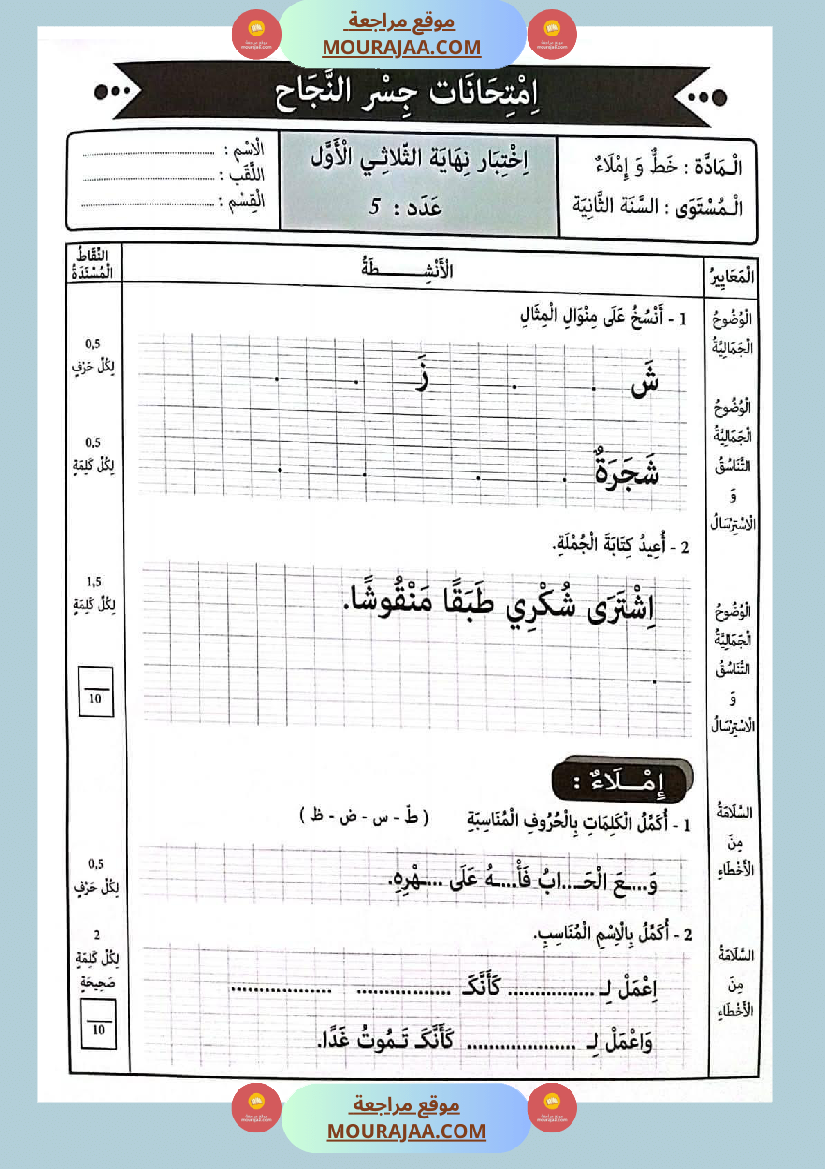 موقع مراجعة
MOURAJAA.COM
اِمْتِحَانَات جِسْر النَّجَاح
الْـمَادَّة : خَطٌّ وَ إِمْلَاءٌ
الْـمُسْتَوَى : السَّنَة الثَّانِيَة
اِخْتِبَار نِهَايَة الثّلَاثِـي الْأَوَّل
عَدَد : 5
الْاسْم : ..............................
اللَّقَب : ..............................
الْقِسْم : ..............................
الْمَعَايِيرُ
الْأَنْشِـــــــــطَةُ
النِّقَاطُ
الْمُسْنَدَةُ
1 - أَنْسُخُ عَلَى مِنْوَالِ الْمِثَالِ
الْوُضُوحُ
الْجَمَالِيَّةُ
شَ . . زَ . .
0,5
لِكُلِّ حَرْفٍ
الْوُضُوحُ
الْجَمَالِيَّةُ
التَّنَاسُقُ
وَ
الْاسْتِرْسَالُ
شَجَرَةٌ . . . .
0,5
لِكُلِّ كَلِمَةٍ
2 - أُعِيدُ كِتَابَةَ الْجُمْلَةِ.
اِشْتَرَى شُكْرِي طَبَقًا مَنْقُوشًا.
.
1,5
لِكُلِّ كَلِمَةٍ
10
الْوُضُوحُ
الْجَمَالِيَّةُ
التَّنَاسُقُ
وَ
الْاسْتِرْسَالُ
إِمْــلَاءٌ :
1 - أُكَمِّلُ الْكَلِمَاتِ بِالْحُرُوفِ الْمُنَاسِبَةِ ( طّ - س - ض - ظ )
السَّلَامَةُ
مِنَ
الْأَخْطَاءِ
وَ....ـعَ الْحَـ...ـابُ فَأْ....ـهُ عَلَى ....ـهْرِهِ.
0,5
لِكُلِّ حَرْفٍ
2 - أُكَمِّلُ بِالْاِسْمِ الْمُنَاسِبِ.
السَّلَامَةُ
مِنَ
الْأَخْطَاءِ
اِعْمَلْ لِـ ................ كَأَنَّكَـ ................. ..................
وَاعْمَلْ لِـ .................... كَأَنَّكَـ تَـمُوتُ غَدًا.
2
لِكُلِّ كَلِمَةٍ
صَحِيحَةٍ
10
موقع مراجعة
MOURAJAA.COM